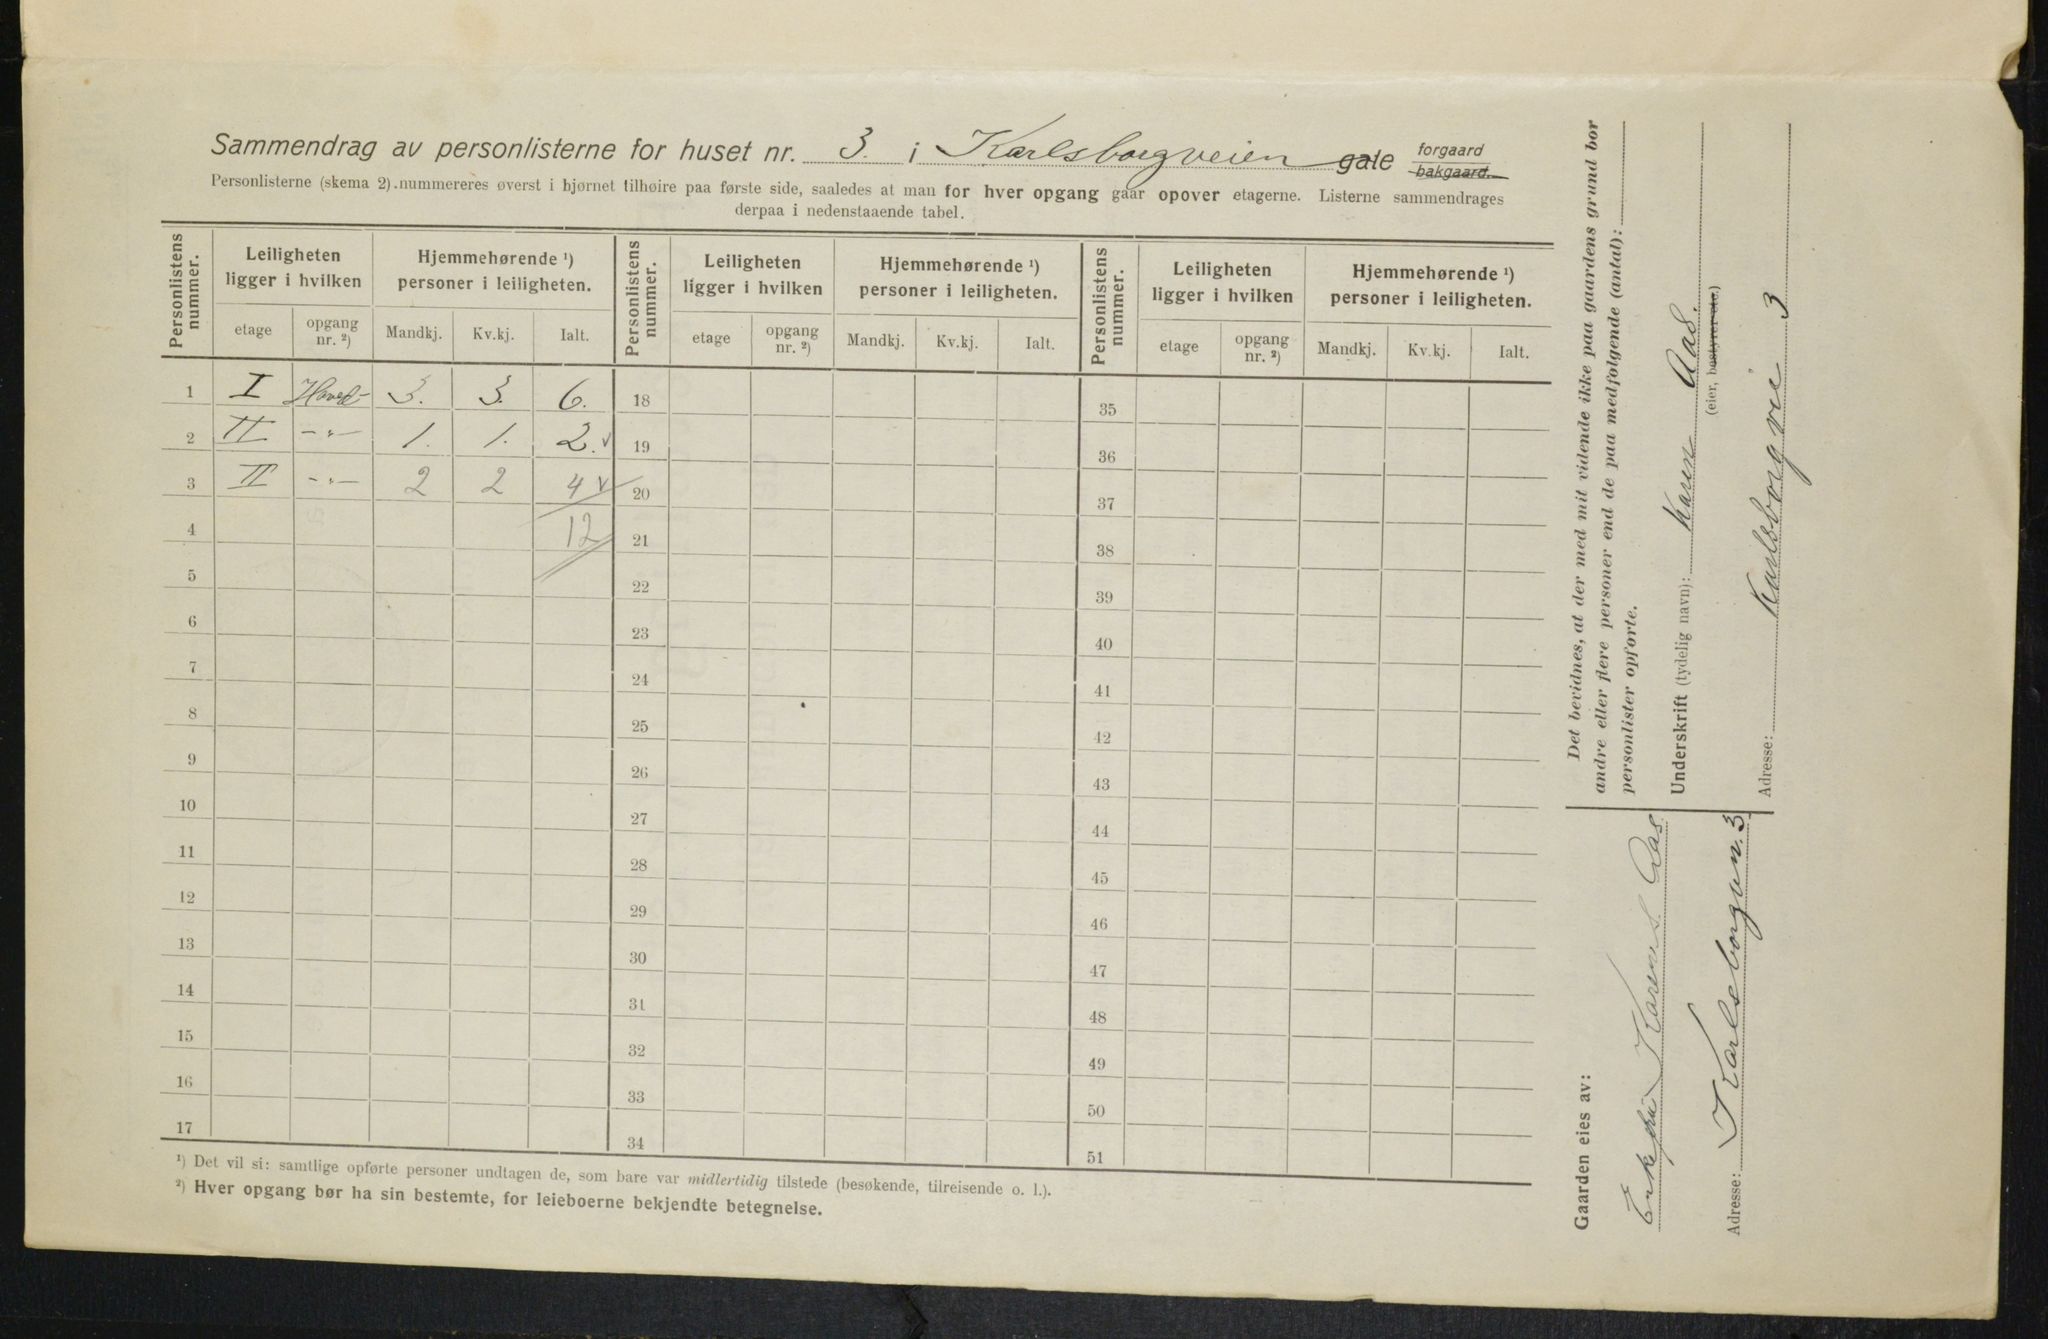 Sammendrag av personlisterne for huset nr. 3. i Karlsborgveien gate forgaard bakgaard.
Personlisterne (skema 2) nummereres øverst i hjørnet tilhøire paa første side, saaledes at man for hver opgang gaar opover etagerne. Listerne sammendrages
derpaa i nedenstaaende tabel.
Personlistens nummer. Leiligheten ligger i hvilken Hjemmehørende ¹) personer i leiligheten. Personlistens nummer. Leiligheten ligger i hvilken Hjemmehørende ¹) personer i leiligheten. Personlistens nummer. Leiligheten ligger i hvilken Hjemmehørende ¹) personer i leiligheten.
etage opgang nr. ²) Mandkj. Kv.kj. Ialt. etage opgang nr. ²) Mandkj. Kv.kj. Ialt. etage opgang nr. ²) Mandkj. Kv.kj. Ialt.
1 I Hoved- 3. 3. 6. 18 35
2 II -"- 1. 1. 2. v 19 36
3 II -"- 2 2 4 v 20 37
4 12 21 38
5 22 39
6 23 40
7 24 41
8 25 42
9 26 43
10 27 44
11 28 45
12 29 46
13 30 47
14 31 48
15 32 49
16 33 50
17 34 51
¹) Det vil si: samtlige opførte personer undtagen de, som bare var midlertidig tilstede (besøkende, tilreisende o. l.).
²) Hver opgang bør ha sin bestemte, for leieboerne bekjendte betegnelse.
Det bevidnes, at der med mit vidende ikke paa gaardens grund bor
andre eller flere personer end de paa medfolgende (antal):
personlister opforte.
Underskrift (tydelig navn): Karen Aas.
(eier, bestyrer etc.)
Adresse: Karlsborgvei 3
Gaarden eies av:
Enkefru Karen S. Aas
Adresse: Karlsborgvn. 3